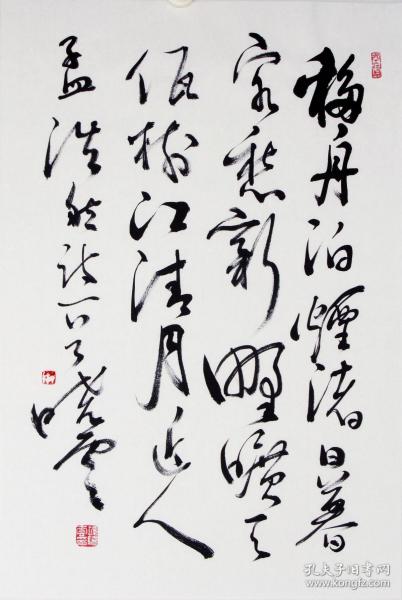 移舟泊煙渚日暮
客愁新野曠天
低樹江清月近人
孟浩然詩一首曉雲
孔夫子旧书网
www.kongfz.com